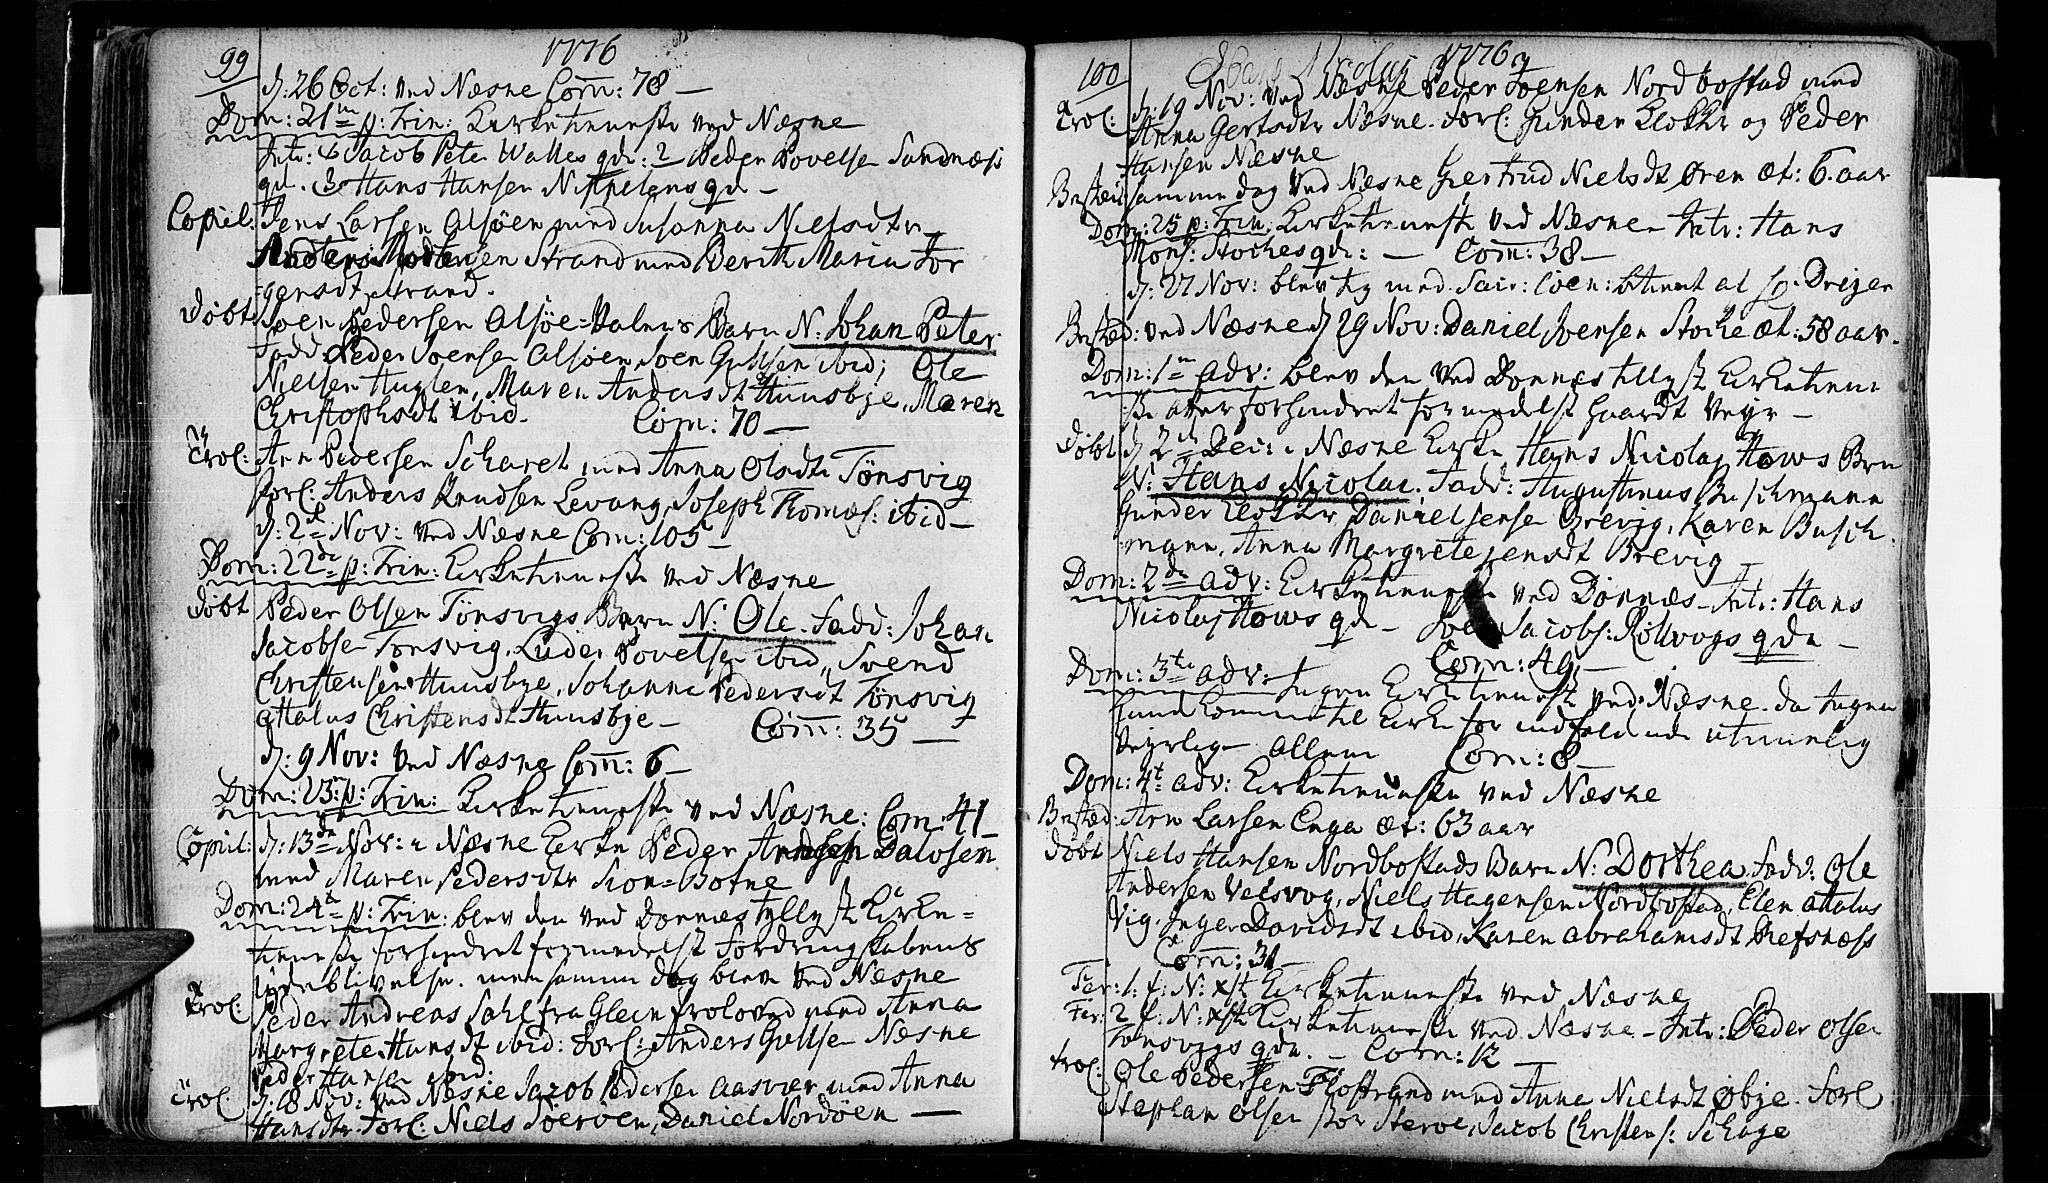 99
1776
d: 26 Oct: ved Næsne Com̄: 78 —
Dom: 21de p: Trin: Kirketieneste ved Næsne
Intr: 1 Jacob Peter Walles qde: 2 Peder Povelsen Sandnæss
qd. 3 Hans Hansen Nippelens qd —
Copul: Jens Larsen Alsøen med Susanna Nielsdtr
Anders Mortensen Strand med Berith Maria Jør
gensdt strand.
døbt Joen Pedersen Alsøe=Valens Barn N: Johan Peter
Fadd: Peder Joensen Alsøen, Joen ibid, Ole
Nielsen Huglen, Maren Andersdt Hunsbye, Maren
Christophsdt ibid. Com: 70 —
Trol: Arn Pedersen Scharet med Anna Olsdtr Tönsvig
forl: Anders Knudsen Levang, Joseph Thomæs: ibid —
d: 2de Nov: ved Næsne Com: 105 —
Dom: 22de p: Trin: Kirketieneste ved Næsne
døbt Peder Olsen Tönsvigs Barn N: Ole. Fadd: Johan
Jacobsen Tonsvig, Lüder Povelsen ibid, Svend
Christensen Hunsbye, Johanna Pedersdt Tönsvig
Attalus Christensdt Hunsbye — Com̄: 35 —
d: 9 Nov: ved Næsne Com̄: 6 —
Dom: 23: p: Trin: Kirketieneste ved Næsne: Com: 41
Copul: d: 13de Nov: i Næsne Kirke Peder Andersen Dalosen
med Maren Pedersdtr Sion=Botne
Dom: 24de p: Trin: blev den ved Dønnes tillyste Kirke=
tieneste forhindret formedelst Fordringskabens
Udeblivelse. men samme dag blev ved Næsne
Trol: Peder Andreas Dahl fra Glein trolovet med Anna
Margrete Hansdt ibid: Forl: Anders Næsne
Peder Hansen ibid.
Trol: d: 18 Nov: ved Næsne Jacob Pedersen Aasvær med Anna
Hansdtr. Forl: Niels Söeröen, Daniel Nordöen —
100
Hans Nicolai 1776
Trol: d: 19 Nov: ved Næsne Peder Joensen Nordbostad med
Anna Gertsdtr Næsne. Forl: Gunder Klokker og Peder
Hansen Næsne
Bested: samme dag ved Næsne Giertrud Nielsdt Øren æt: 6. aar
Dom: 25 p: Trin: Kirketieneste ved Næsne — Intr: Hans
Mons: Stoches qde: — Com̄: 38 —
d: 27 Nov: blev med Sacr: betient af Dreyer
Bested: ved Næsne d 29 Nov: Daniel Joensen Stoche æt: 58 aar.
Dom: 1n Adv: blev den ved Dønnes tillyste Kirketiene
ste atter forhindret formedelst haardt Veyr —
døbt d 2de Dec: i Næsne Kirke Hans Nicolaj Hows Barn
N: Hans Nicolai. Fadd: Augustinus Buschmann
Gunder Klokker, Daniel Jensen Brevig, Karen Busch
mann, Anna Margrete Jensdt Brevig
Dom: 2de Adv: Kirketieneste ved Dönnæs — Intr: Hans
Nicolaj Hows qde — Jacobs: Röllvogs qde —
Com: 49. —
Dom: 3tie Adv: Ingen Kirketieneste ved Næsne. da ingen
kunde komme til Kirke for indfaldende utienelig
Veyrligt. Allene Com: 8 —
Dom: 4t: Adv: Kirketieneste ved Næsne
Bested: Arn Larsen Enga æt: 63 aar
døbt Niels Hansen Nordbostads Barn N: Dorthea. Fadd: Ole
Andersen Velsvog, Niels Hagensen Nordbostad, Elen Attalus
Vig, Inger Davidsdt ibid, Karen Abrahamsdt Refsnæss
Com: 31 —
Fer: 1: f: N: xsti Kirketieneste ved Næsne
Fer: 2 f: N: xsti Kirketieneste ved Næsne — Intr: Peder Olsen
Tonsvigs qde. — Com: 12 —
trol: Ole Pedersen Flostrand med Anne Nielsdt Øbye. Forl
Stephan Olsen Jacob Christens: Schage